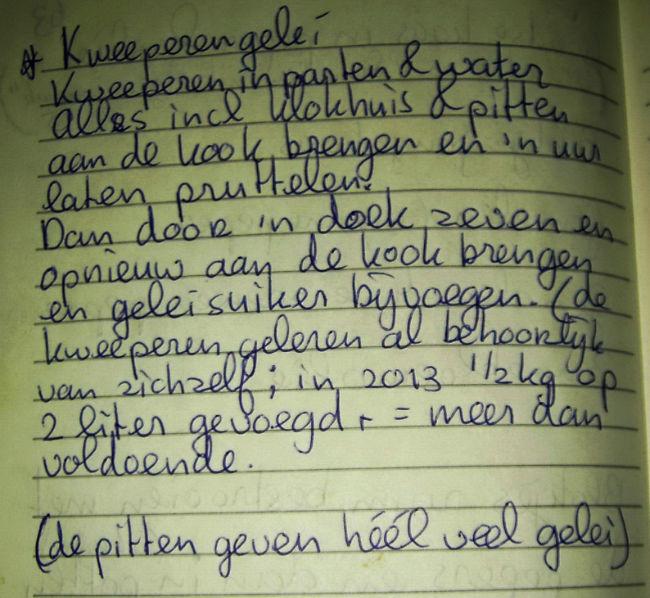 * Kweeperengelei
Kweeperen in parten & water
alles incl klokhuis & pitten
aan de kook brengen en 'n uur
laten pruttelen.
Dan door 'n doek zeven en
opnieuw aan de kook brengen
en geleisuiker bijvoegen. (de
kweeperen geleren al behoorlijk
van zichzelf; in 2013 1/2 kg op
2 liter gevoegd = meer dan
voldoende.
(de pitten geven héél veel gelei)